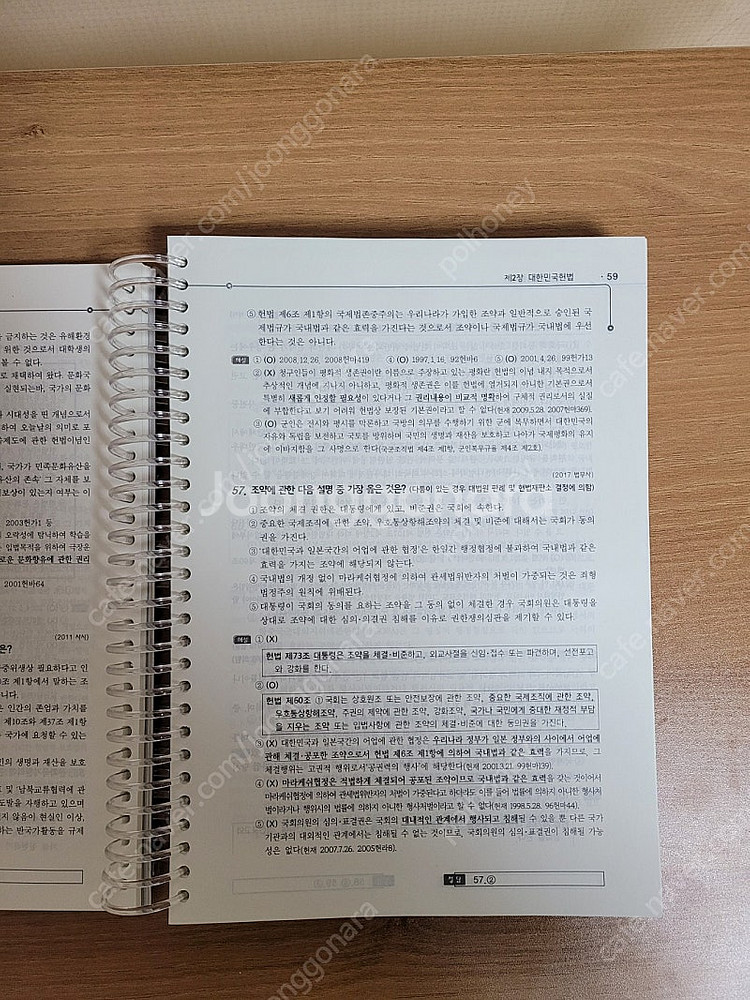 금지하는 것은 유해환경
위한 것으로서 대학생의
볼 수 없다.
로 채택하여 왔다. 문화국
실현되는바, 국가의 문화
시대성을 띤 개념으로서
하여 오늘날의 의미로 포
국가가 민족문화유산을
유산의 존속' 그 자체를 보
보상이 있는지 여부는 이
2003헌가1 등
오락성에 탐닉하여 학습을
입법목적을 위하여 극장운
로운 문화향유에 관한 권리
2001헌바64
(2011 사시)
은?
중위생상 필요하다고 인
제1항에서 말하는 조
니다.
은 인간의 존엄과 가치를
제10조와 제37조 제1항
국가에 요청할 수 있는
민의 생명과 재산을 보호
및 남북교류협력에 관
도발을 자행하고 있으며
지 않음이 현실인 이상,
하는 반국가활동을 규제
제2장 대한민국헌법 · 59
⑤ 헌법 제6조 제1항의 국제법존중주의는 우리나라가 가입한 조약과 일반적으로 승인된 국
제법규가 국내법과 같은 효력을 가진다는 것으로서 조약이나 국제법규가 국내법에 우선
한다는 것은 아니다.
해설 ① (O) 2008.12.26. 2008헌마419 ④ (O) 1997.1.16. 92헌바6 ⑤ (O) 2001.4.26. 99헌가13
② (X) 청구인들이 평화적 생존권이란 이름으로 주장하고 있는 평화란 헌법의 이념 내지 목적으로서
추상적인 개념에 지나지 아니하고, 평화적 생존권은 이를 헌법에 열거되지 아니한 기본권으로서
특별히 새롭게 인정할 필요성이 있다거나 그 권리내용이 비교적 명확하여 구체적 권리로서의 실질
에 부합한다고 보기 어려워 헌법상 보장된 기본권이라고 할 수 없다(헌재 2009.5.28. 2007헌마369).
③ (O) 군인은 전시와 평시를 막론하고 국방의 의무를 수행하기 위한 군에 복무하면서 대한민국의
자유와 독립을 보전하고 국토를 방위하며 국민의 생명과 재산을 보호하고 나아가 국제평화의 유지
에 이바지함을 그 사명으로 한다(국군조직법 제4조 제1항, 군인복무규율 제4조 제2호).
(2017 법무사)
57. 조약에 관한 다음 설명 중 가장 옳은 것은? (다툼이 있는 경우 대법원 판례 및 헌법재판소 결정에 의함)
① 조약의 체결 권한은 대통령에게 있고, 비준권은 국회에 속한다.
② 중요한 국제조직에 관한 조약, 우호통상항해조약의 체결 및 비준에 대해서는 국회가 동의
권을 가진다.
③ '대한민국과 일본국간의 어업에 관한 협정'은 한일간 행정협정에 불과하여 국내법과 같은
효력을 가지는 조약에 해당되지 않는다.
④ 국내법의 개정 없이 마라케쉬협정에 의하여 관세법위반자의 처벌이 가중되는 것은 죄형
법정주의 원칙에 위배된다.
⑤ 대통령이 국회의 동의를 요하는 조약을 그 동의 없이 체결한 경우 국회의원은 대통령을
상대로 조약에 대한 심의·의결권 침해를 이유로 권한쟁의심판을 제기할 수 있다.
해설 ① (X)
헌법 제73조 대통령은 조약을 체결·비준하고, 외교사절을 신임·접수 또는 파견하며, 선전포고
와 강화를 한다.
② (O)
헌법 제60조 ① 국회는 상호원조 또는 안전보장에 관한 조약, 중요한 국제조직에 관한 조약,
우호통상항해조약, 주권의 제약에 관한 조약, 강화조약, 국가나 국민에게 중대한 재정적 부담
을 지우는 조약 또는 입법사항에 관한 조약의 체결·비준에 대한 동의권을 가진다.
③ (X) 대한민국과 일본국간의 어업에 관한 협정은 우리나라 정부가 일본 정부와의 사이에서 어업에
관해 체결·공포한 조약으로서 헌법 제6조 제1항에 의하여 국내법과 같은 효력을 가지므로, 그
체결행위는 고권적 행위로서 '공권력의 행사'에 해당한다(헌재 2001.3.21. 99헌마139).
④ (X) 마라케쉬협정은 적법하게 체결되어 공포된 조약이므로 국내법과 같은 효력을 갖는 것이어서
마라케쉬협정에 의하여 관세법위반자의 처벌이 가중된다고 하더라도 이를 들어 법률에 의하지 아니한 형사처
벌이라거나 행위시의 법률에 의하지 아니한 형사처벌이라고 할 수 없다(헌재 1998.5.28. 96헌마44).
⑤ (X) 국회의원의 심의·표결권은 국회의 대내적인 관계에서 행사되고 침해될 수 있을 뿐 다른 국가
기관과의 대외적인 관계에서는 침해될 수 없는 것이므로, 국회의원의 심의·표결권이 침해될 가능
성은 없다(헌재 2007.7.26. 2005헌라8).
정답 57.②
cafe.naver.com/joonggonara
polhoney